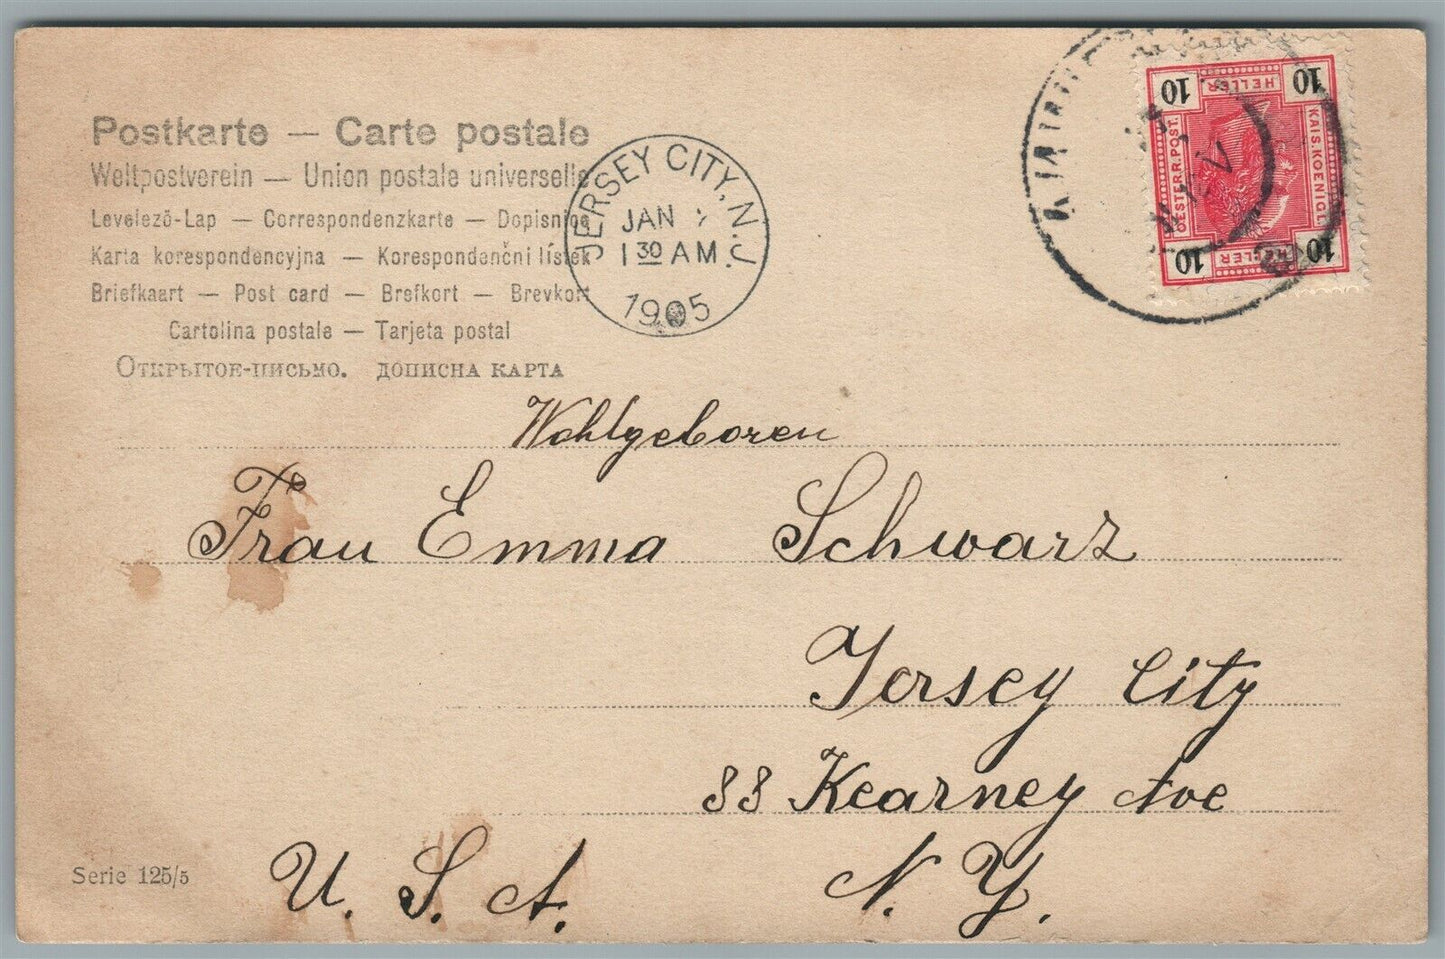 Postkarte — Carte postale
Weltpostverein — Union postale universelle
Levelező-Lap — Correspondenzkarte — Dopisnice
Karta korespondencyjna — Korespondenčni lístek
Briefkaart — Post card — Brefkort — Brevkort
Cartolina postale — Tarjeta postal
Открытое-письмо. дописна карта
JERSEY CITY, N.J.
JAN
1 30 AM
1905
10 HELLER 10
OESTERR.POST. KAIS.KOENIGL.
10 HELLER 10
WIEN
Wohlgeboren
Frau Emma Schwarz
Jersey City
88 Kearney Ave
U. S. A. N. Y.
Serie 125/5